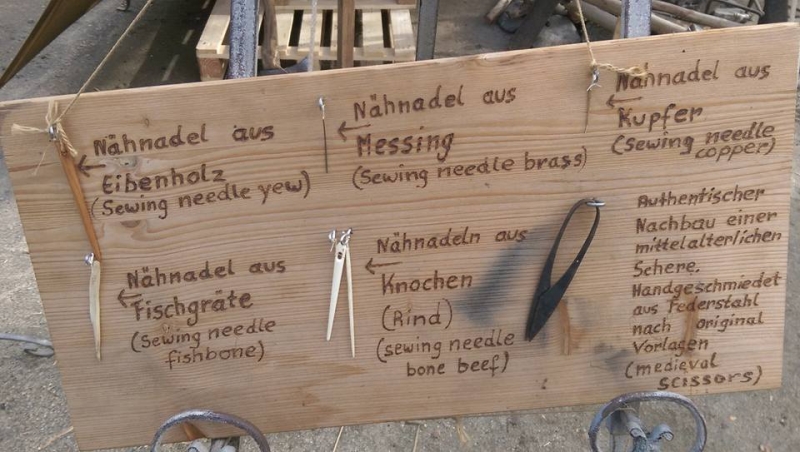 Nähnadel aus
Eibenholz
(Sewing needle yew)
Nähnadel aus
Messing
(Sewing needle brass)
Nähnadel aus
Kupfer
(Sewing needle
copper)
Nähnadel aus
Fischgräte
(Sewing needle
fishbone)
Nähnadeln aus
Knochen
(Rind)
(sewing needle
bone beef)
Authentischer
Nachbau einer
mittelalterlichen
Schere.
Handgeschmiedet
aus Federstahl
nach original
Vorlagen
(medieval
scissors)